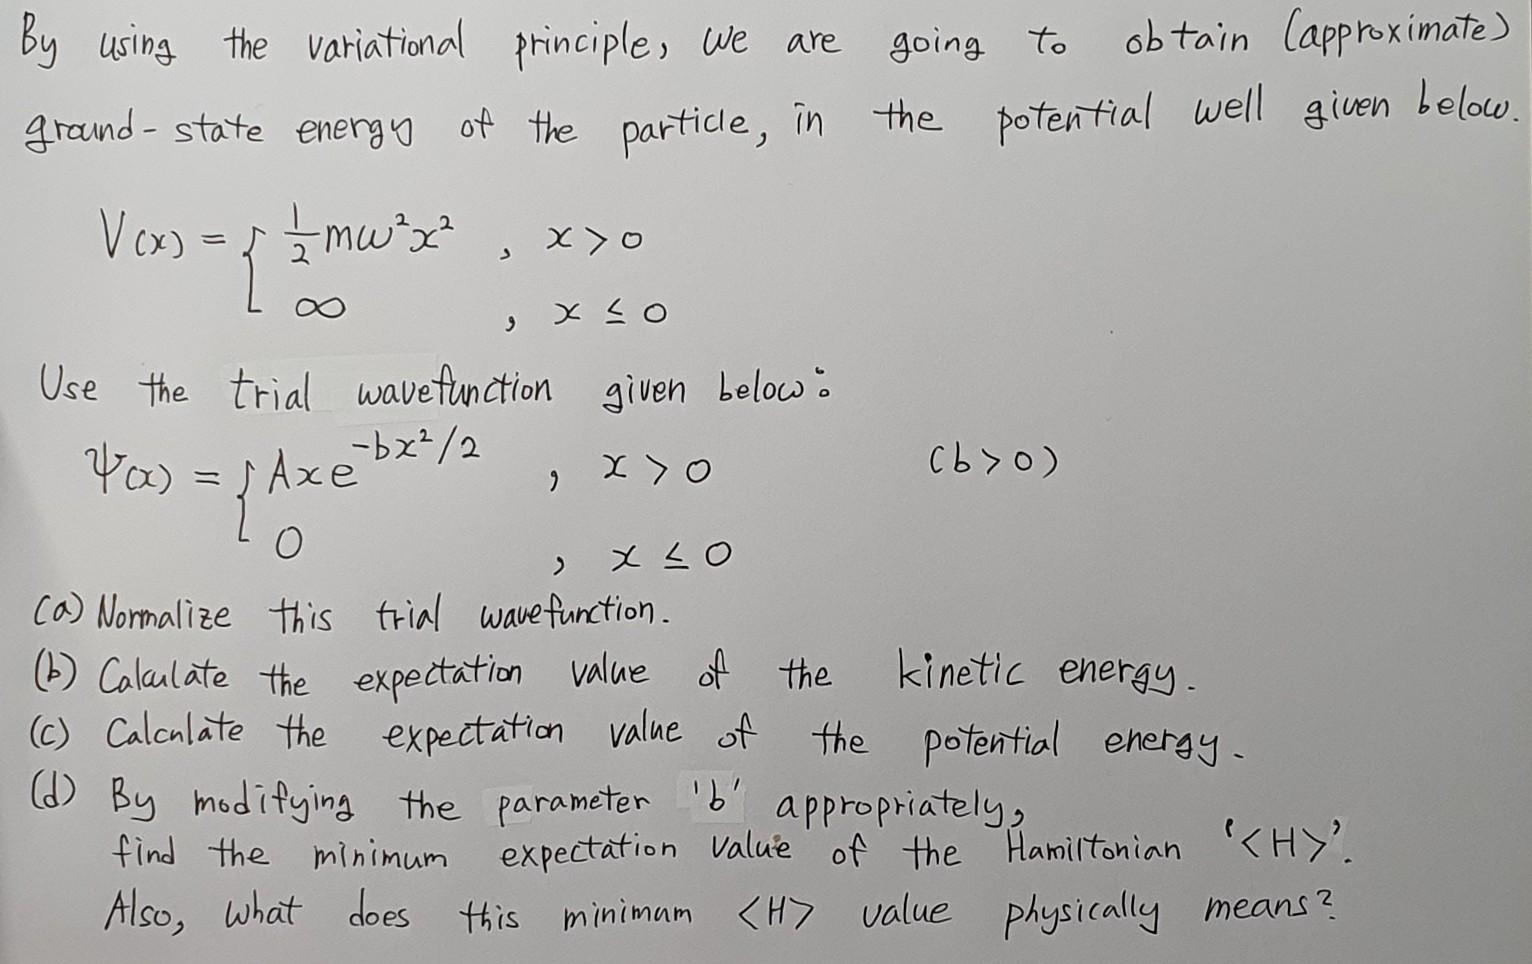 By using the variational principle, we are going to obtain (approximate)
ground-state energy of the particle, in the potential well given below.
V(x) = { 1/2 mω²x² , x > 0
∞ , x ≤ 0
Use the trial wavefunction given below:
Ψ(x) = { Axe^(-bx²/2) , x > 0 (b>0)
0 , x ≤ 0
(a) Normalize this trial wavefunction.
(b) Calculate the expectation value of the kinetic energy.
(c) Calculate the expectation value of the potential energy.
(d) By modifying the parameter 'b' appropriately,
find the minimum expectation value of the Hamiltonian '<H>'.
Also, what does this minimum <H> value physically means?